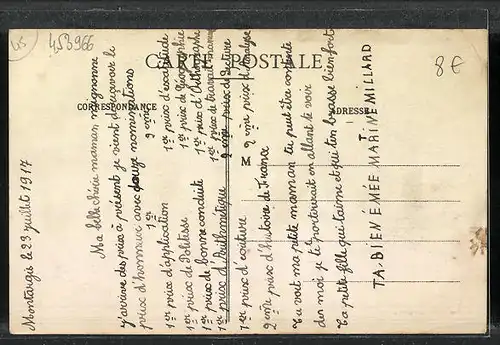 VS
453966
8€
CARTE POSTALE
CORRESPONDANCE
ADRESSE
M
Montargis le 23 juillet 1917
Ma belle chérie maman mignonne
j'arrive des prix à présent je vient de reçevoir le
prix d'honneur avec douze nominations
1er 2ème
1er prix d'application 1er prix d'exactitude
1er prix de Politesse 1er prix de Géographie
1er prix de bonne conduite 1er prix d'Orthographe
1er prix d'Arithmétique 1er prix de travail manuel
2ème prix de lecture
1er prix d'écriture 2ème prix d'Analyse
2ème prix d'histoire de France
Tu voit ma petite maman tu peut être contente
de moi je te porterait en allant te voir
Ta petite fille qui t'aime et qui t'en brasse bien fort
TA BIEN ÉMÉE MARTINE MILLARD